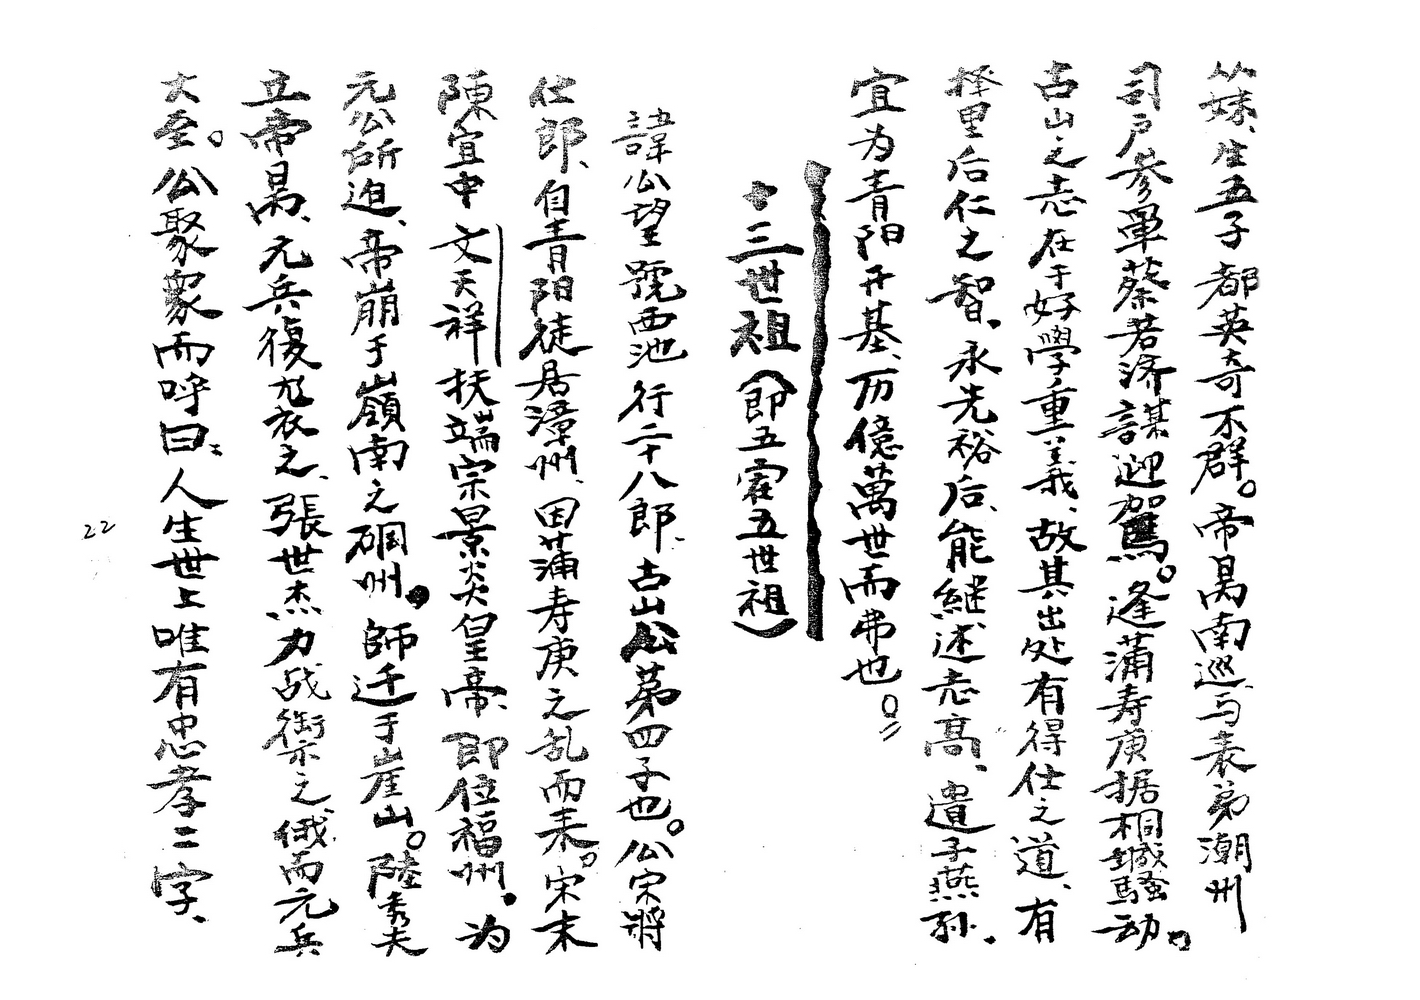 妹、生五子都英奇不群。帝昺南巡、与表弟潮州
司户参軍蔡若济謀迎駕。逢蒲寿庚据桐城騷动。
古山之志在于好學重義、故其出处有得仕之道、有
择里后仁之智、永先裕后、能継述志高、遺子燕孙、
宜为青阳开基、历億萬世而弗也。
十三世祖（即五房五世祖）
諱公望號西池行二十八郎、古山公第四子也。公宋將
仕郎、自青阳徒居漳州、因蒲寿庚之乱而来。宋末
陳宜中文天祥扶端宗景炎皇帝、即位福州。为
元公所迫、帝崩于嶺南之硐州。師迁于崖山。陸秀夫
立帝昺、元兵復追之、張世杰力战禦之、俄而元兵
大至。公聚衆而呼曰：人生世上唯有忠孝二字、
22